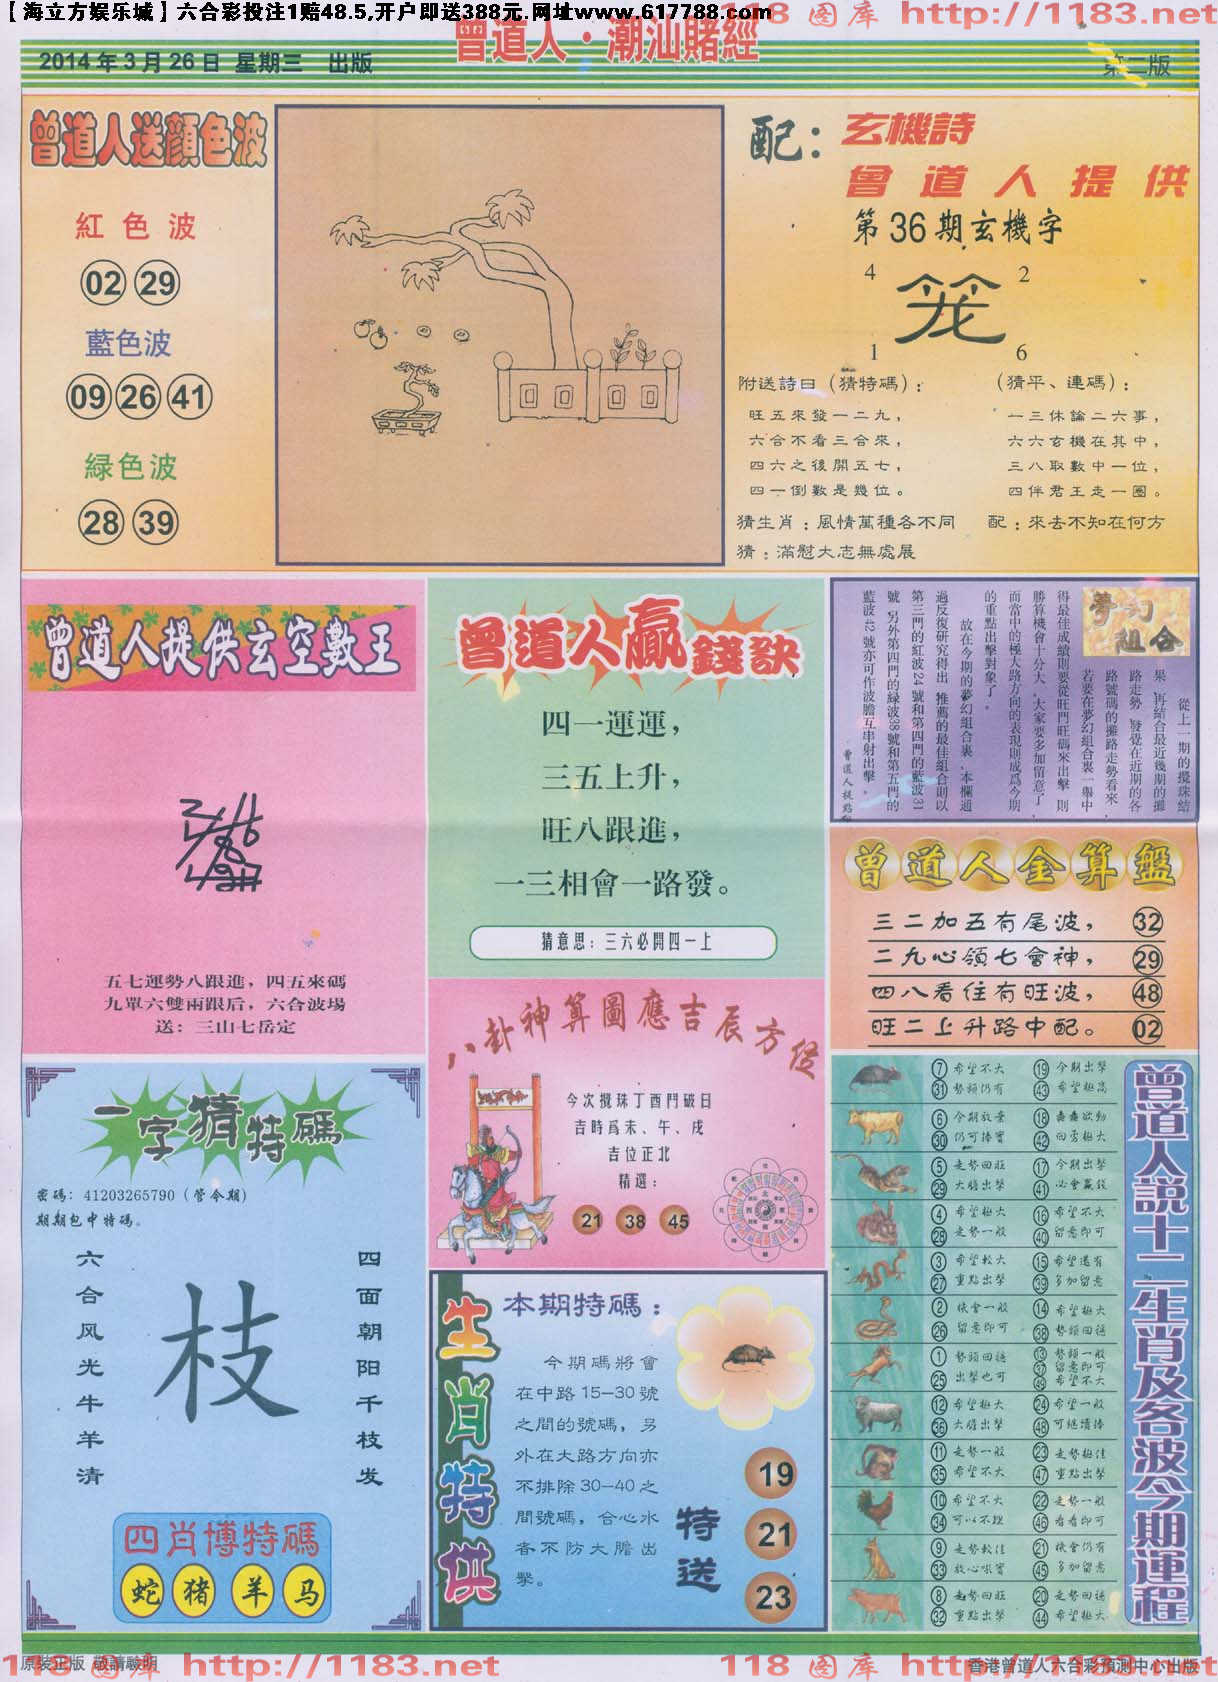 【海立方娱乐城】六合彩投注1赔48.5,开户即送388元.网址www.617788.com
118 图库 http://1183.net
曾道人·潮汕賭經
2014年3月26日 星期三 出版
第二版
曾道人送顔色波
紅色波
02 29
藍色波
09 26 41
緑色波
28 39
配：玄機詩
曾道人提供
第36期玄機字
4 2
笼
1 6
附送詩曰（猜特碼）：
旺五來發一二九，
六合不看三合來，
四六之後開五七，
四一倒數是幾位。
（猜平、連碼）：
一三休論二六事，
六六玄機在其中，
三八取數中一位，
四伴君王走一圈。
猜生肖：風情萬種各不同 配：來去不知在何方
猜：滿慰大志無處展
曾道人提供玄空數王
五七運勢八跟進，四五來碼
九單六雙兩跟后，六合波場
送：三山七岳定
曾道人贏錢訣
四一運運，
三五上升，
旺八跟進，
一三相會一路發。
猜意思：三六必開四一上
夢幻組合
從上一期的攪珠結
果，再結合最近幾期的攤
路走勢，發覺在近期的各
路號碼的攤路走勢看來，
若要在夢幻組合裏一舉中
得最佳成績則要從旺門旺碼來出擊，則
勝算機會十分大，大家要多加留意了，
而當中的極大路方向的表現則成爲今期
的重點出擊對象了。
故在今期的夢幻組合裏，本欄通
過反復研究得出，推薦的最佳組合則以
第三門的紅波24號和第四門的藍波31
號，另外第四門的緑波38號和第五門的
藍波42號亦可作波膽互串射出擊。
曾道人提點
曾道人金算盤
三二加五有尾波， 32
二九心領七會神， 29
四八看住有旺波， 48
旺二上升路中配。 02
八卦神算圖應吉辰方位
今次攪珠丁酉鬥破日
吉時爲未、午、戌
吉位正北
精選：
21 38 45
一字猜特碼
密碼：41203265790（管令期）
期期包中特碼。
六合风光牛羊清
枝
四面朝阳千枝发
四肖博特碼
蛇 猪 羊 马
生肖特供
本期特碼：
今期碼將會
在中路15—30號
之間的號碼，另
外在大路方向亦
不排除30—40之
間號碼，合心水
者不防大膽出
擊。
特送
19
21
23
曾道人説十二生肖及各波今期運程
7 希望不大 19 今期出擊
31 勢頭仍有 43 希望極高
6 今期放棄 18 蠢蠢欲動
30 仍可捧實 42 回勇極大
5 走勢回旺 17 今期出擊
29 大膽出擊 41 必會贏錢
4 希望極大 16 希望不大
28 走勢一般 40 留意即可
3 希望較大 15 希望還有
27 重點出擊 39 多加留意
2 機會一般 14 希望極大
26 留意即可 38 勢頭回穩
1 勢頭回穩 13 勢頭一般
25 出擊也可 37 留意即可
49 希望不大
12 希望極大 24 希望一般
36 大膽出擊 48 可繼續捧
11 走勢一般 23 走勢極佳
35 希望不大 47 重點出擊
10 希望不大 22 走勢一般
34 可以不理 46 看看即可
9 走勢較佳 21 機會仍有
33 放心吼實 45 多加留意
8 走勢回旺 20 走勢回穩
32 重點出擊 44 希望極大
原装正版 敬請驗明
118 图库 http://1183.net
118 图库 http://1183.net
香港曾道人六合彩預測中心出版